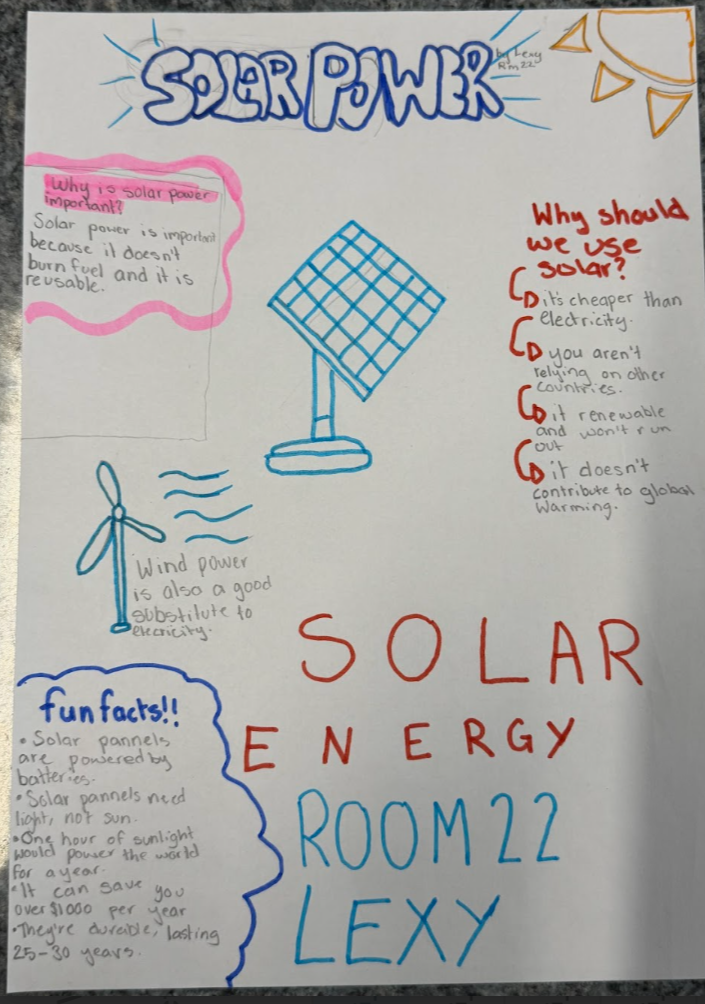 SOLAR POWER
by Lexy
Rm 22
Why is solar power
important?
Solar power is important
because it doesn't
burn fuel and it is
reusable.
Why should
we use
solar?
it's cheaper than
electricity.
you aren't
relying on other
countries.
it renewable
and won't run
out
it doesn't
contribute to global
warming.
Wind power
is also a good
substitute to
electricity.
SOLAR
ENERGY
ROOM 22
LEXY
fun facts!!
• Solar pannels
are powered by
batteries.
• Solar pannels need
light, not sun.
• One hour of sunlight
would power the world
for a year.
• It can save you
over $1000 per year
• They're durable, lasting
25-30 years.